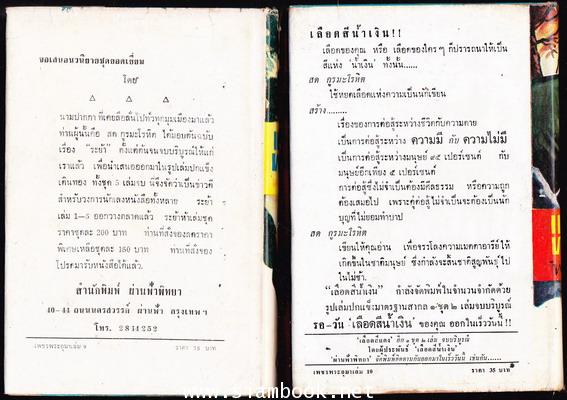 ขอเสนอนวนิยายชุดยอดเยี่ยม
โดย
นามปากกาที่เคยลือลั่นไปทั่วทุกมุมเมืองมาแล้ว
ท่านผู้นั้นคือ สด กูรมะโรหิต ได้มอบต้นฉบับ
เรื่อง "ระย้า" ตั้งแต่ต้นจนจบบริบูรณ์ให้แก่
เราแล้ว เพื่อนำเสนอออกมาในรูปเล่มปกแข็ง
เดินทอง ทั้งชุด 5 เล่มจบ นี่จึงจัดว่าเป็นข่าวดี
สำหรับวงการนักเลงหนังสือทั้งหลาย ระย้า
เล่ม 1-5 ออกวางตลาดแล้ว ระย้าห้าเล่มชุด
ราคาชุดละ 200 บาท ท่านที่สั่งของลดราคา
พิเศษเหลือชุดละ 150 บาท ท่านที่สั่งของ
โปรดมารับหนังสือได้แล้ว.
สำนักพิมพ์ ผ่านฟ้าพิทยา
40-44 ถนนนครสวรรค์ ผ่านฟ้า กรุงเทพฯ
โทร. 2814252
เพชรพระอุมาเล่ม 9 ราคา 35 บาท
เลือดสีน้ำเงิน!!
เลือดของคุณ หรือ เลือดของใครๆ ก็ปรารถนาให้เป็น
สีแห่ง 'น้ำเงิน' ทั้งนั้น......
สด กูรมะโรหิต
ใช้หยดเลือดแห่งความเป็นนักเขียน
สร้าง........
เรื่องของการต่อสู้ระหว่างชีวิตกับความตาย
เป็นการต่อสู้ระหว่าง ความมี กับ ความไม่มี
เป็นการต่อสู้ระหว่างมนุษย์ ๙๕ เปอร์เซนต์ กับ
มนุษย์อีกเพียง ๕ เปอร์เซนต์
การต่อสู้ซึ่งไม่จำเป็นต้องมีศีลธรรม หรือความถูก
ต้องเสมอไป เพราะคู่ต่อสู้ไม่จำเป็นจะต้องเป็นนัก
บุญที่ไม่ยอมทำบาป
สด กูรมะโรหิต
เขียนให้คุณอ่าน เพื่อจรรโลงความเมตตาอารีย์ให้
เกิดขึ้นในชาติมนุษย์ ซึ่งกำลังจะสิ้นชาติสูญพันธุ์ไป
ในไม่ช้า.
"เลือดสีน้ำเงิน" กำลังจัดพิมพ์ในจำนวนจำกัดด้วย
รูปเล่มปกแข็งมาตรฐานสากล ๑ ชุด ๒ เล่มจบบริบูรณ์
รอ-วัน 'เลือดสีน้ำเงิน' ของคุณ ออกในเร็ววันนี้!!
'เลือดสีแดง' อีก ๑ ชุด ๒ เล่ม จบบริบูรณ์
โดยผู้ประพันธ์ 'เลือดสีน้ำเงิน'
'ผ่านฟ้าพิทยา' จัดพิมพ์ติดตามกันออกมาในเร็ววันนี้ เช่นกัน....
เพชรพระอุมาเล่ม 10 ราคา 35 บาท
www.siambook.net